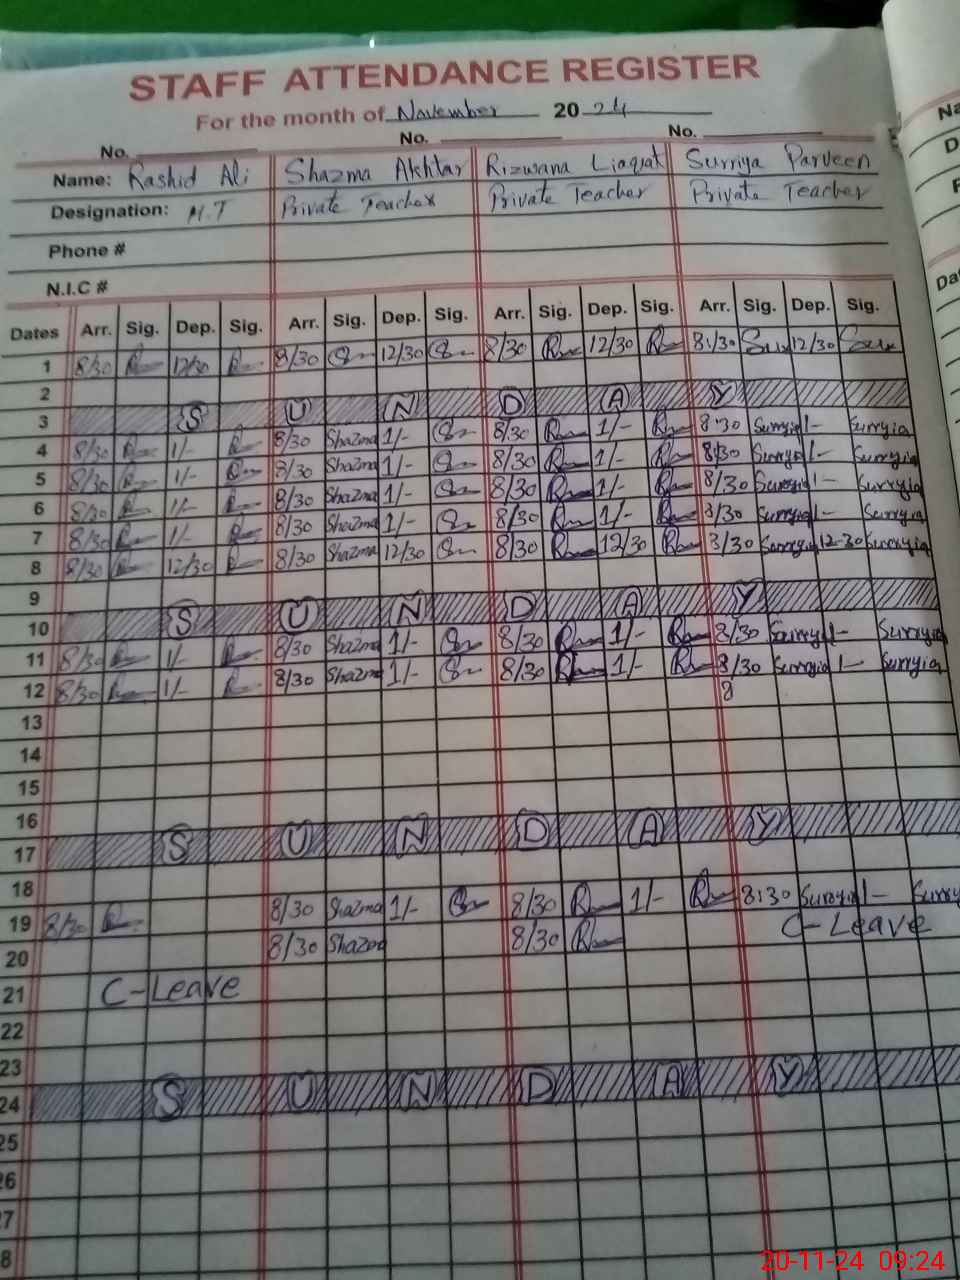 STAFF ATTENDANCE REGISTER
For the month of November 2024
No. No. No.
Name: Rashid Ali Shazma Akhtar Rizwana Liaqat Surriya Parveen
Designation: H.T Private Teacher Private Teacher Private Teacher
Phone #
N.I.C #
Dates Arr. Sig. Dep. Sig. Arr. Sig. Dep. Sig. Arr. Sig. Dep. Sig. Arr. Sig. Dep. Sig.
1 8/30 12/30 8/30 12/30 8/30 12/30 8:/30 12/30
2
3 S U N D A Y
4 8/30 1/- 8/30 Shazma 1/- 8/30 1/- 8:30 Surryia 1- Surryia
5 8/30 1/- 8/30 Shazma 1/- 8/30 1/- 8/30 Surryia 1- Surryia
6 8/30 1/- 8/30 Shazma 1/- 8/30 1/- 8/30 Surryia 1- Surryia
7 8/30 1/- 8/30 Shazma 1/- 8/30 1/- 8/30 Surryia 1- Surryia
8 8/30 12/30 8/30 Shazma 12/30 8/30 12/30 8/30 Surryia 12-30 Surryia
9
10 S U N D A Y
11 8/30 1/- 8/30 Shazma 1/- 8/30 1/- 8/30 Surryia 1- Surryia
12 8/30 1/- 8/30 Shazma 1/- 8/30 1/- 8/30 Surryia 1- Surryia
8
13
14
15
16
17 S U N D A Y
18
19 8/30 8/30 Shazma 1/- 8/30 1/- 8:30 Surryia 1- Surry
20 8/30 Shazma 8/30 C-Leave
21 C-Leave
22
23
24 S U N D A Y
25
26
27
28
20-11-24 09:24